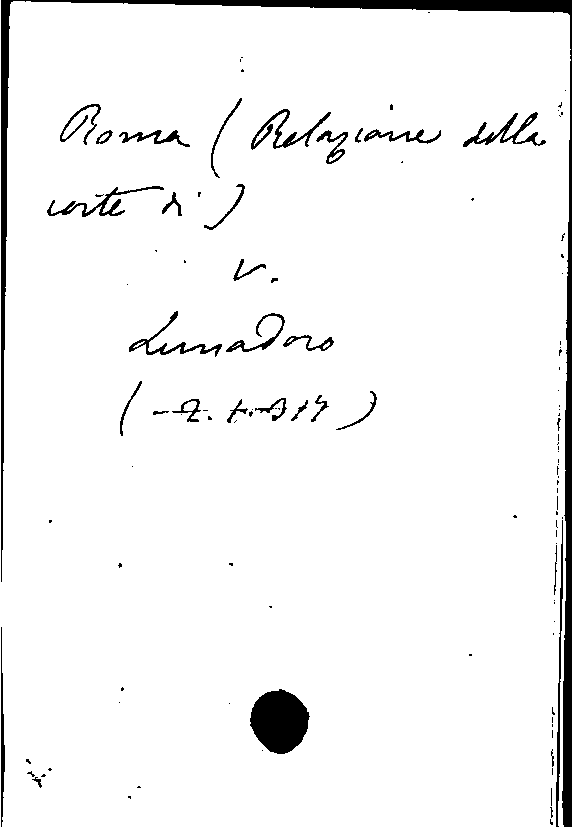 Roma (Relazione della
corte di)
V.
Lunadoro